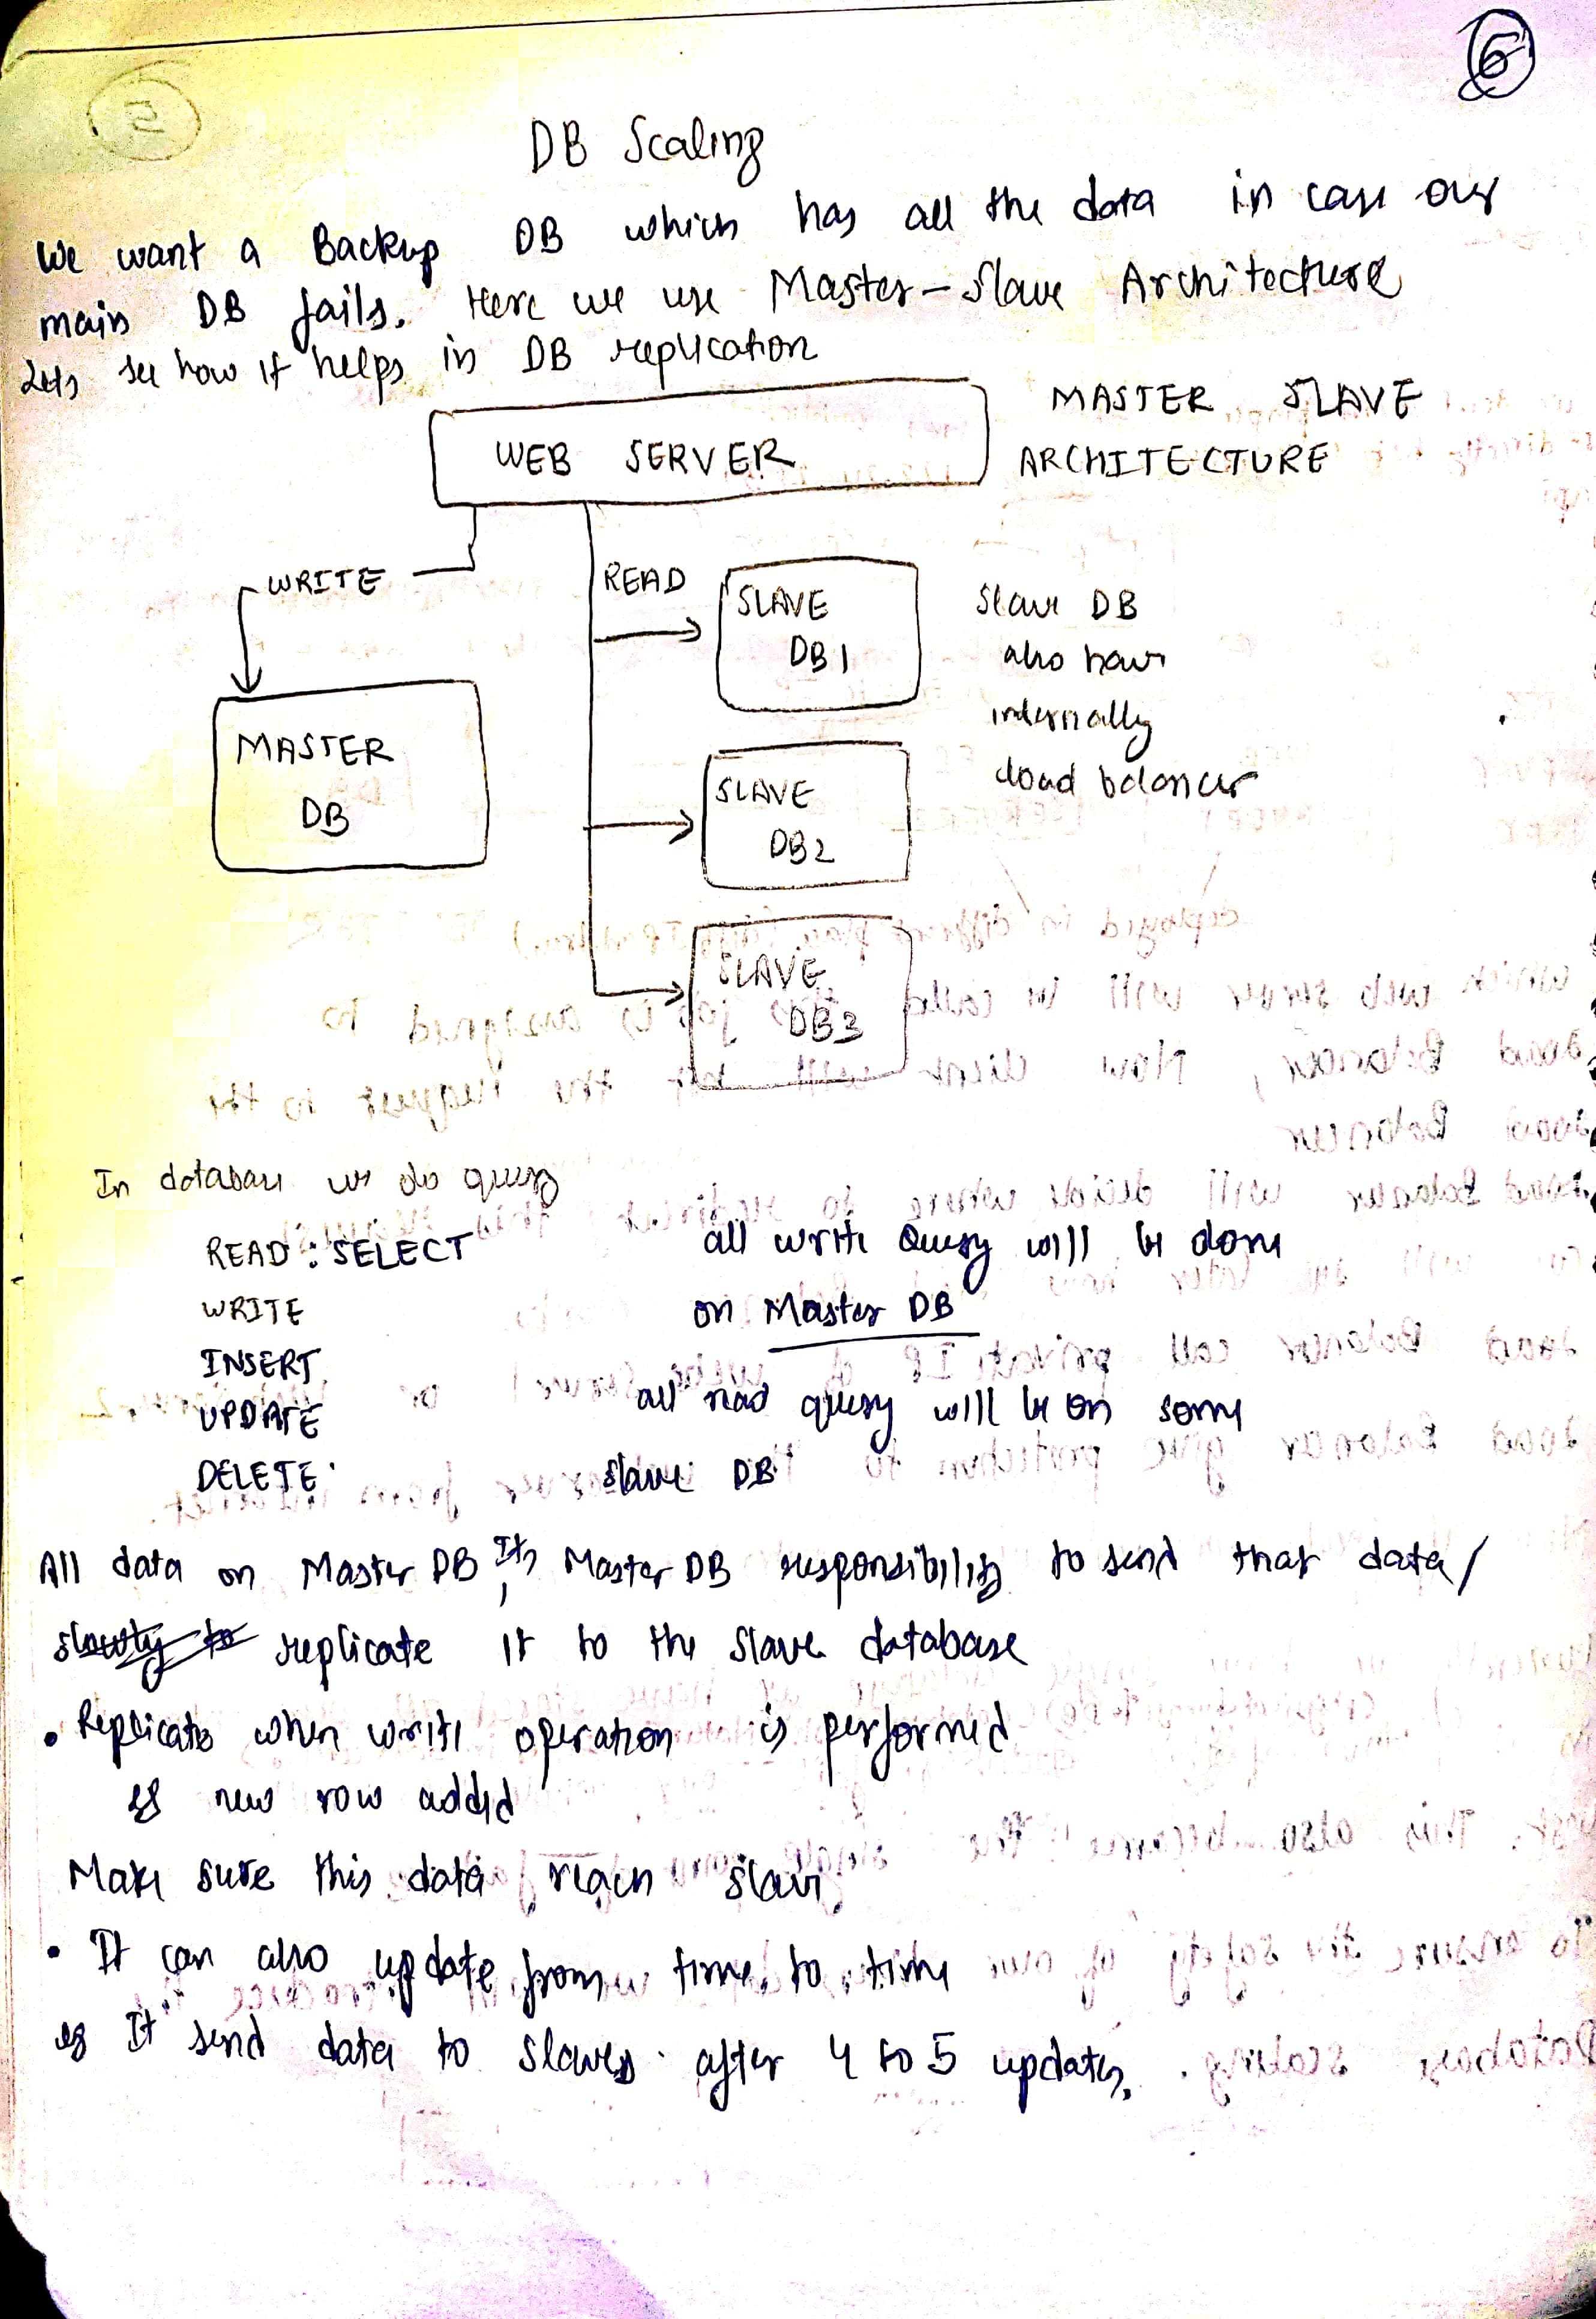 6
DB Scaling
We want a Backup DB which has all the data in case our
main DB fails. Here we use Master-Slave Architecture
Lets see how it helps in DB replication
MASTER SLAVE
ARCHITECTURE
WEB SERVER
WRITE
READ
SLAVE
DB1
Slave DB
also have
internally
load balancer
MASTER
DB
SLAVE
DB2
SLAVE
DB3
In database we do query
READ : SELECT
WRITE
INSERT
UPDATE
DELETE
all write Query will be done
on Master DB
all read query will be on some
slave DB
All data on Master DB, Its Master DB responsibility to send that data/
slowly to replicate it to the slave database
• Replicate when write operation is performed
eg new row added
Make sure this data reach slave
• It can also update from time to time
eg It send data to slaves after 4 to 5 updates.